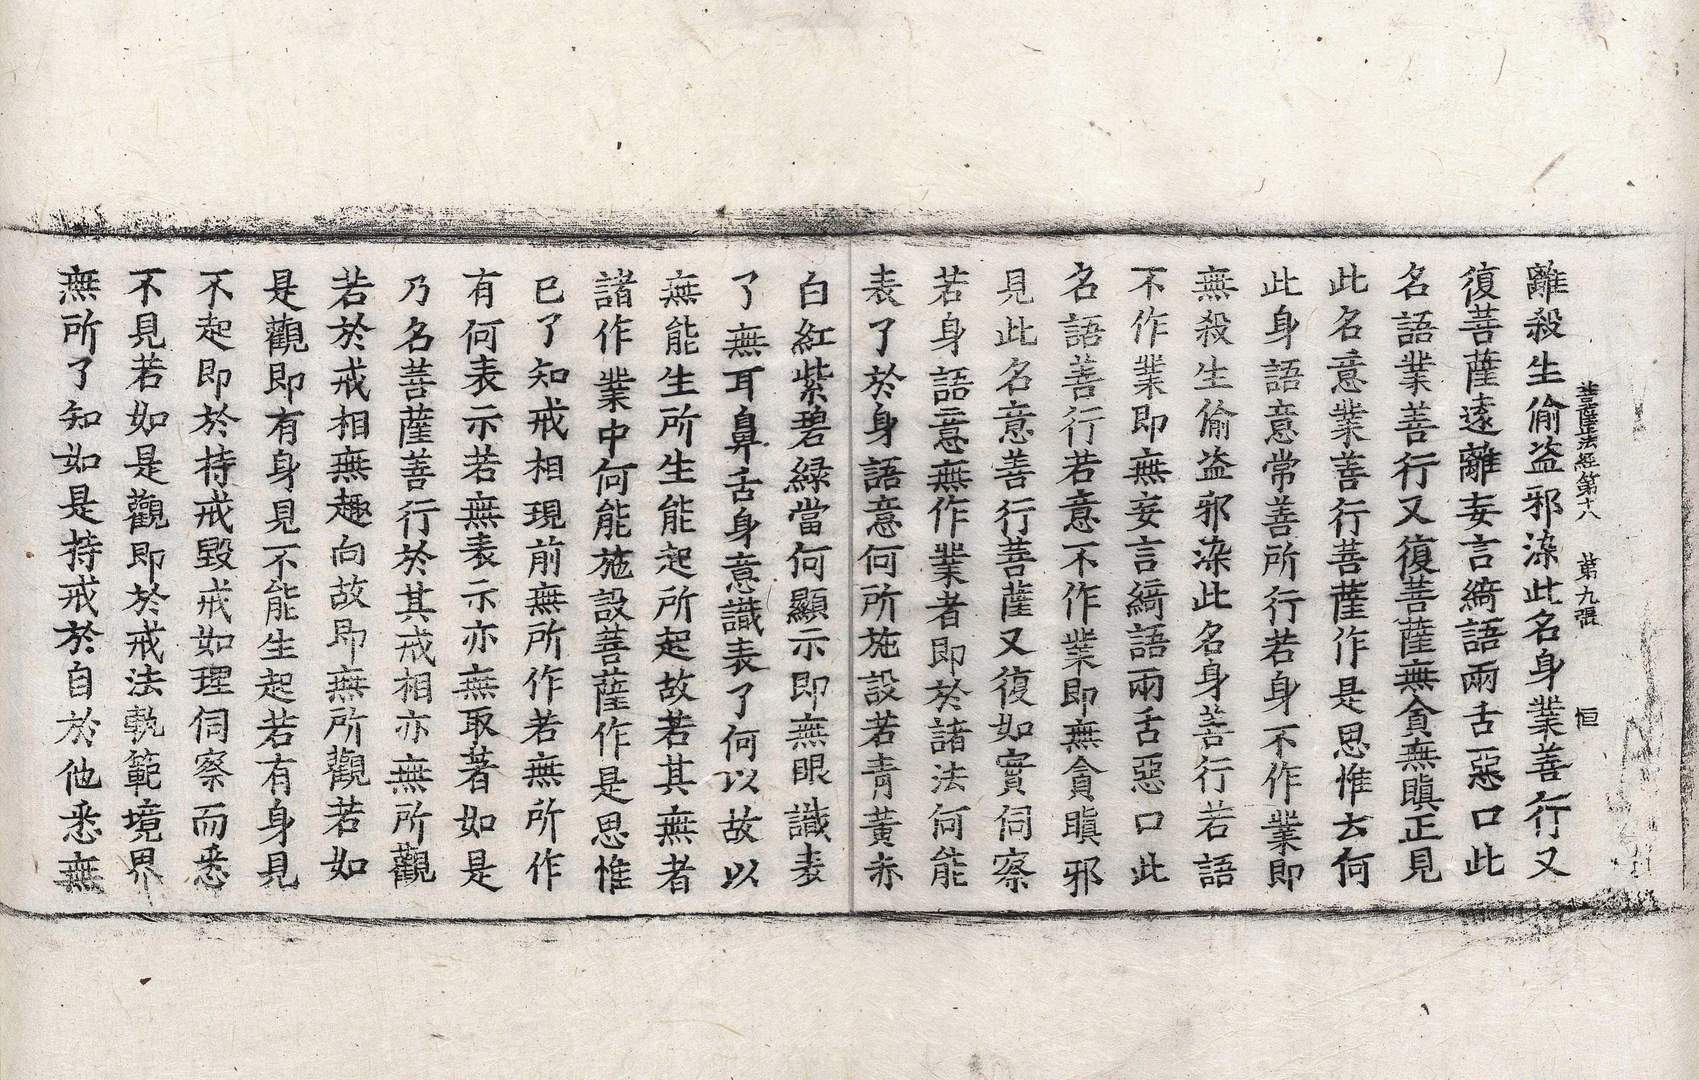 菩薩正法經第十八　第九張　恒
離殺生偷盗邪染此名身業善行又
復菩薩遠離妄言綺語兩舌惡口此
名語業善行又復菩薩無貪無瞋正見
此名意業善行菩薩作是思惟云何
此身語意常善所行若身不作業即
無殺生偷盗邪染此名身善行若語
不作業即無妄言綺語兩舌惡口此
名語善行若意不作業即無貪瞋邪
見此名意善行菩薩又復如實伺察
若身語意無作業者即於諸法何能
表了於身語意何所施設若青黄赤
白紅紫碧綠當何顯示即無眼識表
了無耳鼻舌身意識表了何以故以
無能生所生能起所起故若其無者
諸作業中何能施設菩薩作是思惟
已了知戒相現前無所作若無所作
有何表示若無表示亦無取著如是
乃名菩薩善行於其戒相亦無所觀
若於戒相無趣向故即無所觀若如
是觀即有身見不能生起若有身見
不起即於持戒毀戒如理伺察而悉
不見若如是觀即於戒法軌範境界
無所了知如是持戒於自於他悉無